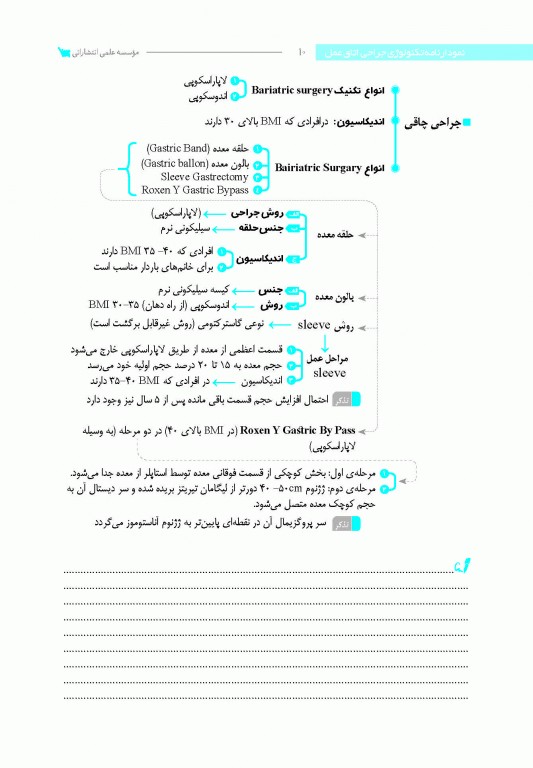 نمودارنامه تکنولوژی جراحی اتاق عمل
۱۰
مؤسسه علمی انتشاراتی
جراحی چاقی
انواع تکنیک Bariatric surgery
۱ لاپاراسکوپی
۲ اندوسکوپی
اندیکاسیون: درافرادی که BMI بالای ۳۰ دارند
انواع Bairiatric Surgary
۱ حلقه معده (Gastric Band)
۲ بالون معده (Gastric ballon)
۳ Sleeve Gastrectomy
۴ Roxen Y Gastric Bypass
حلقه معده
الف روش جراحی (لاپاراسکوپی)
ب جنس حلقه سیلیکونی نرم
ج اندیکاسیون
۱ افرادی که ۴۰–۳۵ BMI دارند
۲ برای خانم‌های باردار مناسب است
بالون معده
الف جنس کیسه سیلیکونی نرم
ب روش اندوسکوپی (از راه دهان) BMI ۳۰–۳۵
روش sleeve نوعی گاسترکتومی (روش غیرقابل برگشت است)
مراحل عمل
sleeve
۱ قسمت اعظمی از معده از طریق لاپاراسکوپی خارج می‌شود
۲ حجم معده به ۱۵ تا ۲۰ درصد حجم اولیه خود می‌رسد
۳ اندیکاسیون در افرادی که ۳۵–۴۰ BMI دارند
تذکر احتمال افزایش حجم قسمت باقی مانده پس از ۵ سال نیز وجود دارد
Roxen Y Gastric By Pass (در BMI بالای ۴۰) در دو مرحله (به وسیله
لاپاراسکوپی)
۱ مرحله‌ی اول: بخش کوچکی از قسمت فوقانی معده توسط استاپلر از معده جدا می‌شود.
۲ مرحله‌ی دوم: ژژنوم ۴۰–۵۰cm دورتر از لیگامان تیریتز بریده شده و سر دیستال آن به
حجم کوچک معده متصل می‌شود.
تذکر سر پروگزیمال آن در نقطه‌ای پایین‌تر به ژژنوم آناستوموز می‌گردد